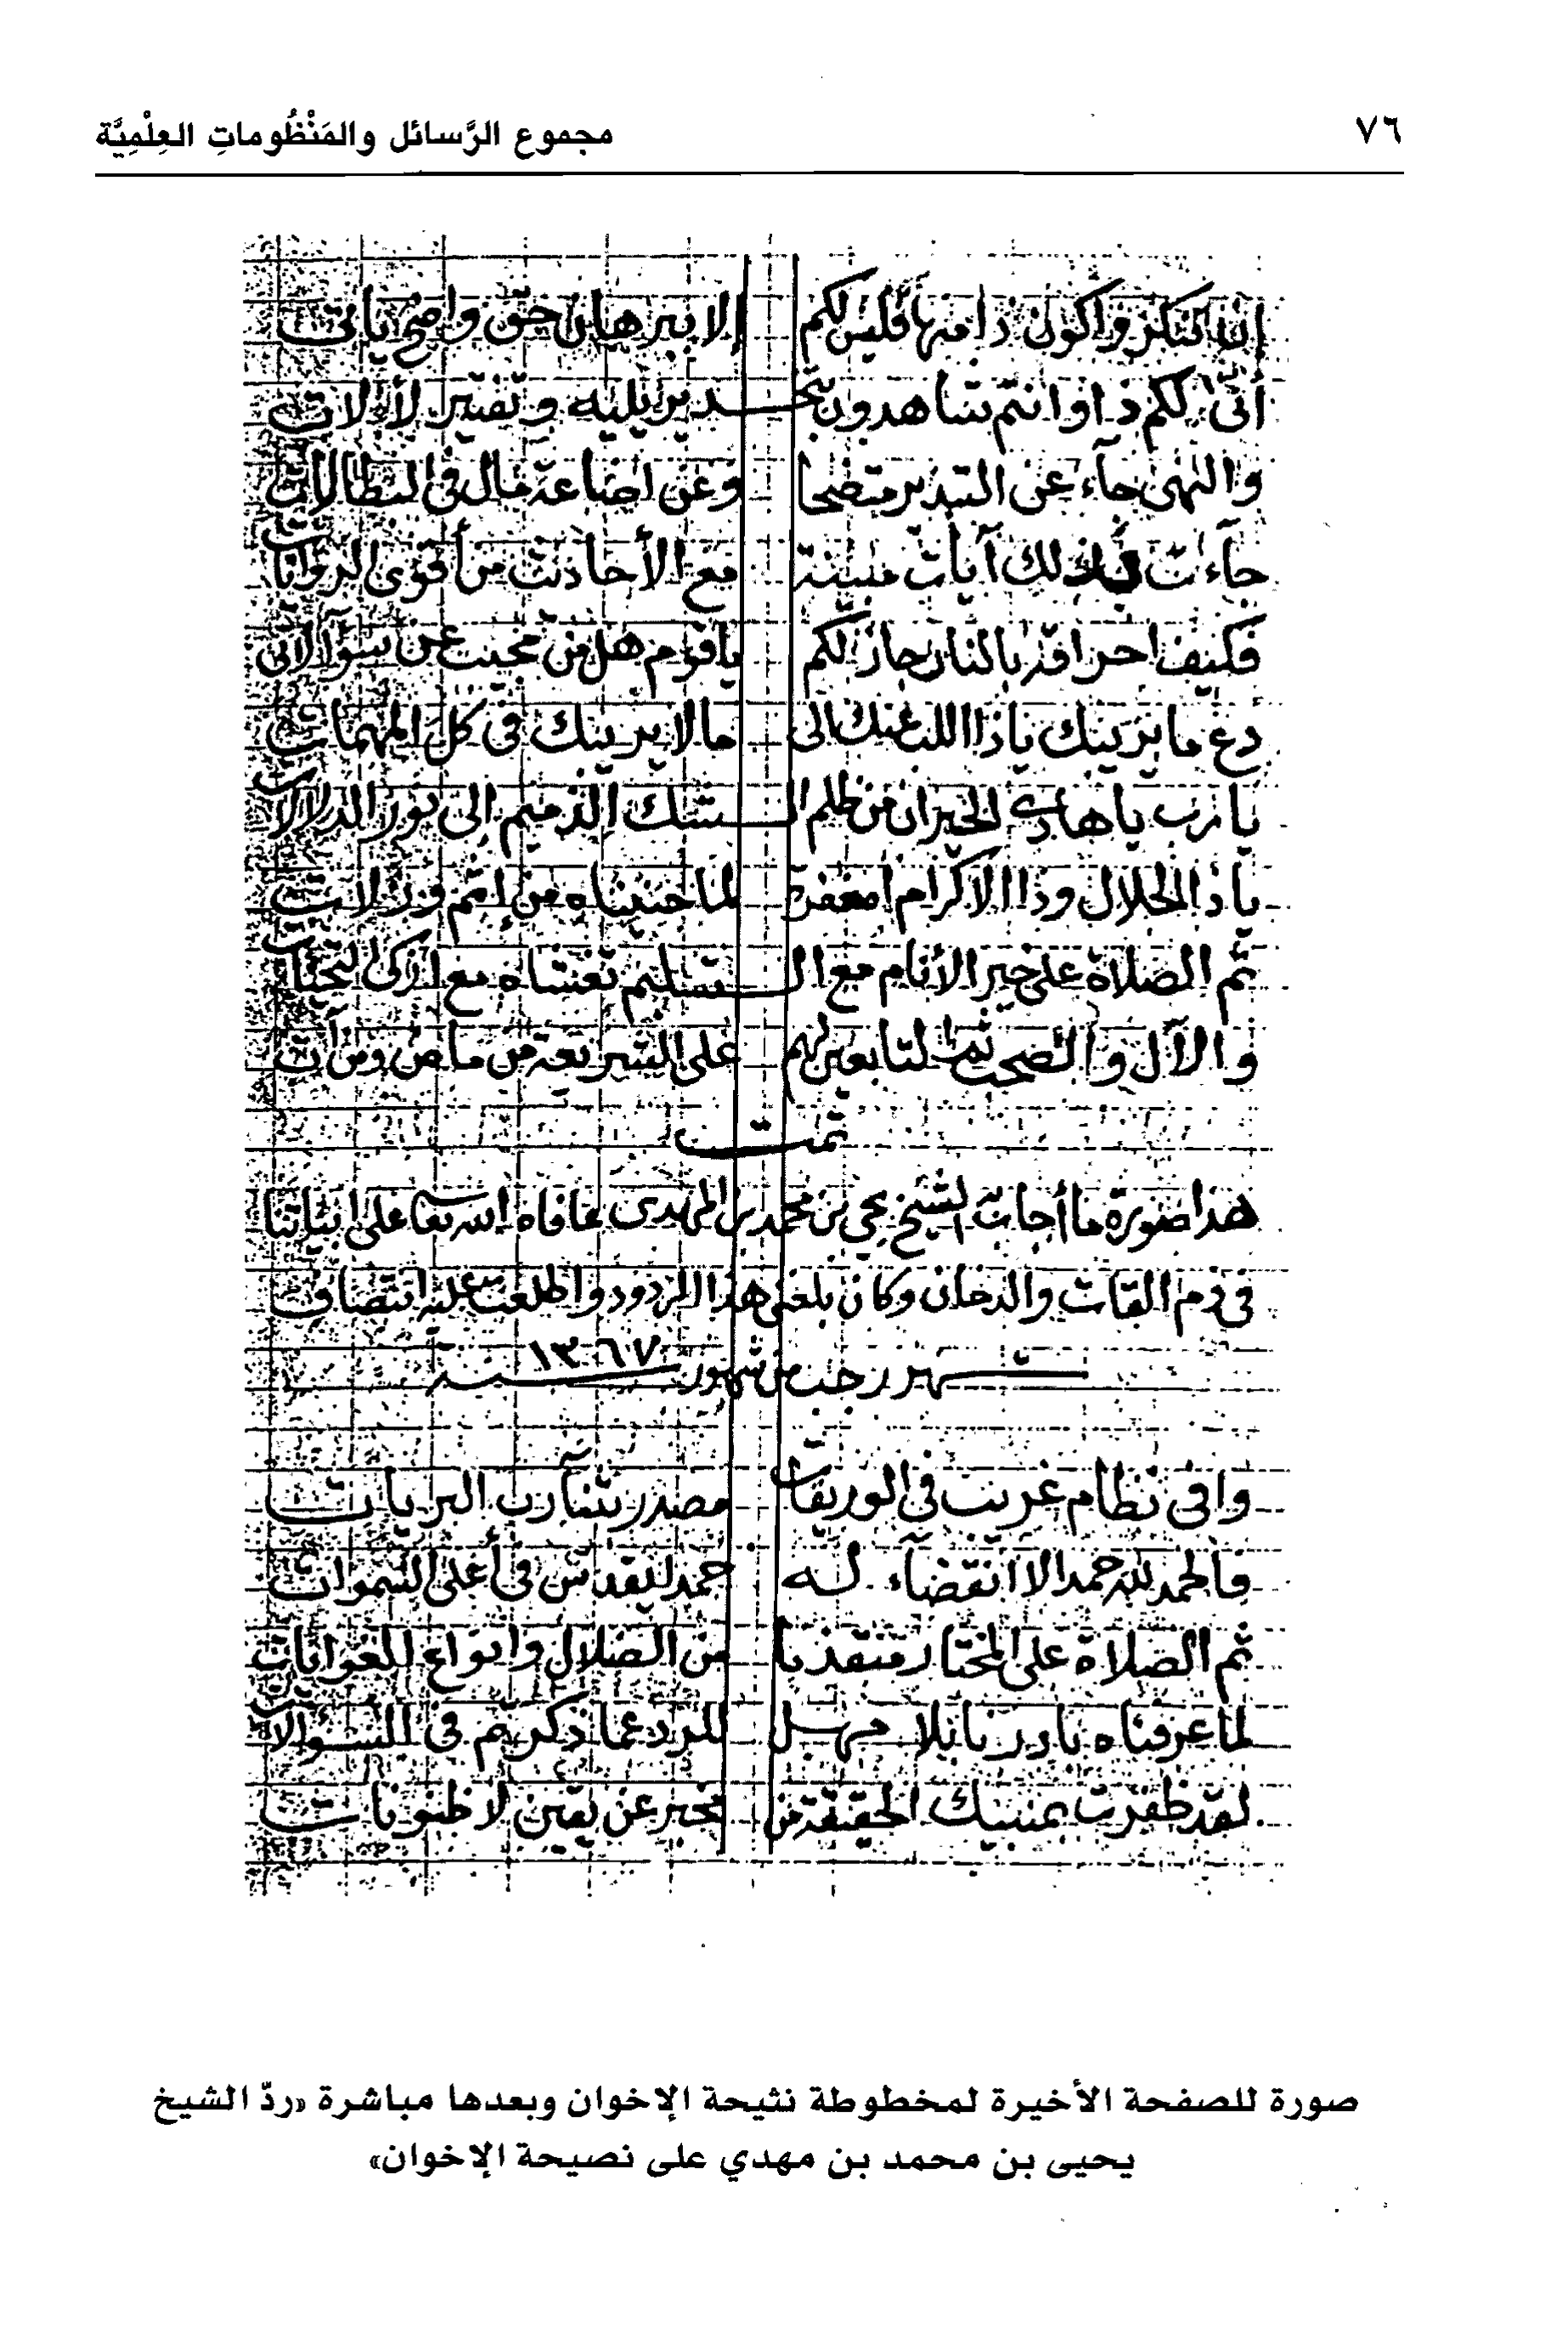 ٧٦ مجموع الرَّسائل والمَنْظُوماتِ العِلْمِيَّة
فليس لكم إلا ببرهان حق واضح ياتي
أنى لكم ذا وانتم تشاهدون بتخـدير يليه وتفتير لألات
والنهى جاء عن التبذير متضحا وعن اضاعة مال في البطالات
جاءت لذلك آيات مبينة مع الأحاديث من أقوى الروايات
فكيف احراقه بالنار جاز لكم ياقوم هل من مجيب عن سؤآلاتي
دع ما يريبك ياذا اللب عنك الى مالا يريبك في كل المهمات
يا رب يا هادي الحيران من ظلم الـشك الذميم الى نور الدلالات
يا ذا الجلال وذا الاكرام مغفرة لما جنيناه من إثم وزلات
ثم الصلاة على خير الأنام مع الـتسليم تغشاه مع ازكى التحيات
والآل والصحب ثم التابعين لهم على الشريعة من ماض ومن آت
تمت
هذا صورة ما أجاب الشيخ يحي بن محمد بن المهدى عافاه الله تعا على ابياتنا
في ذم القات والدخان وكان بلغني هذا المردود واطلعت عليه انتصاف
شهر رجب من شهور سنة ١٣٦٧
وافى نظام غريب في الوريقات مصدر بثنآ رب البريات
فالحمد لله حمدا لا انقضاء له حمد التقدس في أعلى السموات
ثم الصلاة على المختار منقذنا من الضلال وانواع الغوايات
لما عرفناه بادرنا بلا مهـل للرد عما ذكرتم في السؤالات
لقد ظفرت بمنيك الحقيقة من مخبر عن يقين لا ظنونات
صورة للصفحة الأخيرة لمخطوطة نثيحة الإخوان وبعدها مباشرة «ردّ الشيخ
يحيى بن محمد بن مهدي على نصيحة الإخوان»